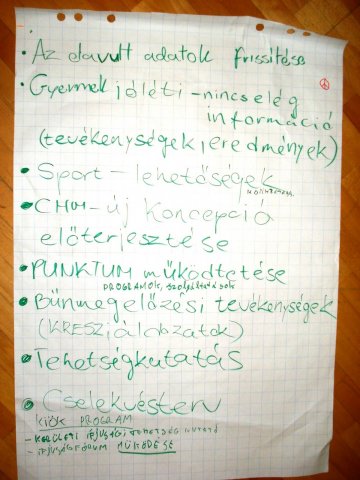 • Az elavult adatok frissítése
• Gyermekjóléti - nincs elég
információ
(tevékenységek, eredmények)
• Sport - lehetőségek
• új koncepció
előterjesztése
• PUNKTUM működtetése
PROGRAMOK, szolgáltatások
• Bűnmegelőzési tevékenységek
(KRESZ
• Tehetségkutatás
• Cselekvésterv
PROGRAM
- KERÜLETI IFJUSÁGI TEHETSÉG KUTATÓ
- IFJUSÁGI FÓRUM MŰKÖDÉSE